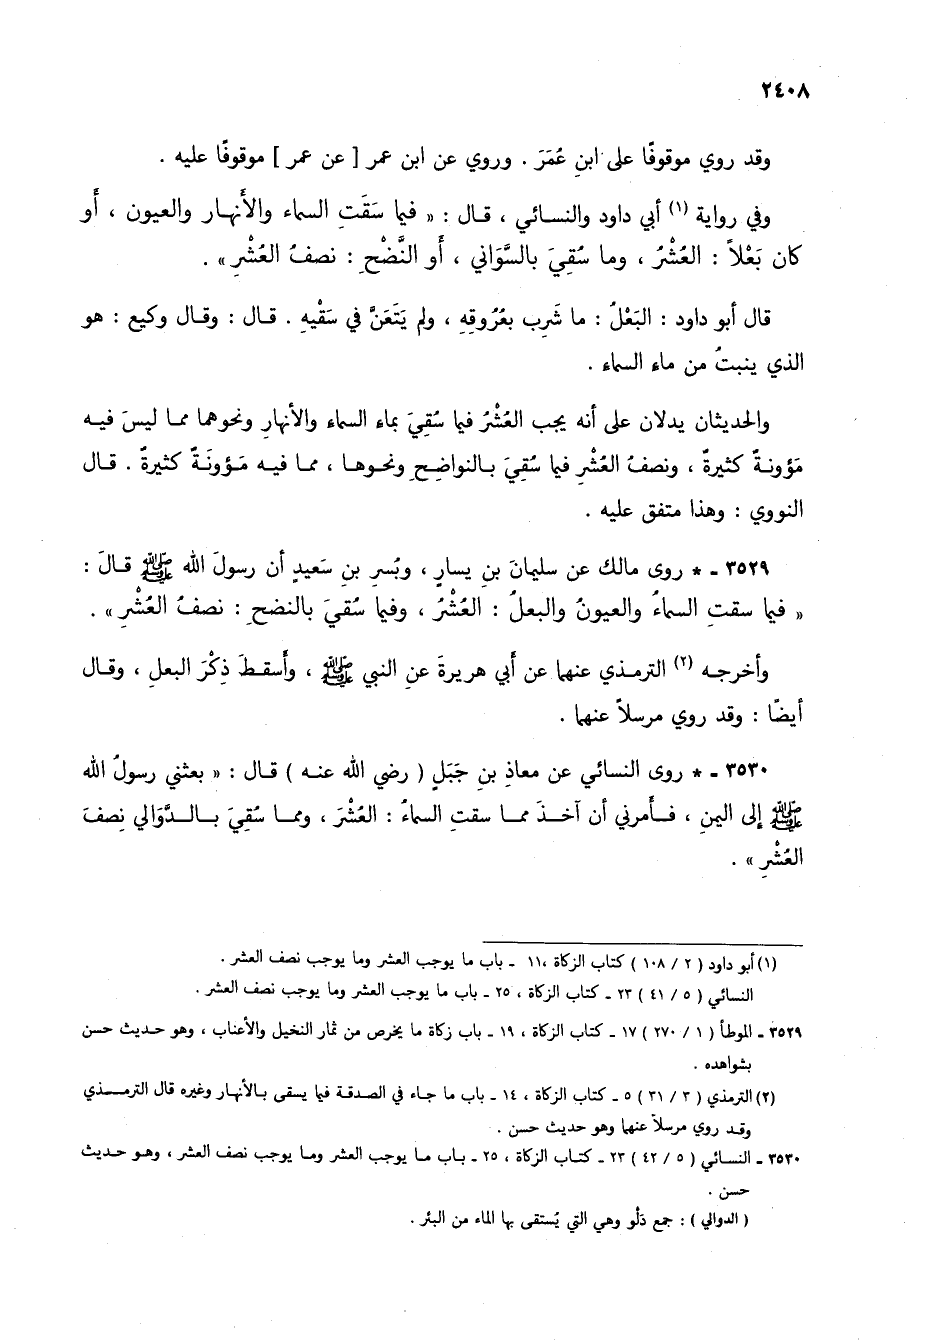 ٢٤٠٨
وقد روي موقوفًا على ابنِ عُمَرَ . وروي عن ابن عمر [ عن عمر ] موقوفًا عليه .
وفي رواية (١) أبي داود والنسائي ، قال : « فيما سَقَتِ السماء والأَنهار والعيون ، أَو
كان بَعْلاً : العُشْرُ ، وما سُقِيَ بالسَّوَاني ، أَو النَّضْحِ : نصفُ العُشْرِ » .
قال أبو داود : البَعْلُ : ما شَرِب بعُرُوقِهِ ، ولم يَتَعَنَّ في سَقْيِهِ . قال : وقال وكيع : هو
الذي ينبتُ من ماء السماء .
والحديثان يدلان على أنه يجب العُشْرُ فيما سُقِيَ بماء السماء والأنهارِ ونحوهما مما ليسَ فيه
مَؤونةٌ كثيرةٌ ، ونصفُ العُشْرِ فيما سُقِيَ بالنواضِحِ ونحوها ، مما فيه مَؤونَةٌ كثيرةٌ . قال
النووي : وهذا متفق عليه .
٣٥٢٩ - * روى مالك عن سليمانَ بنِ يسارٍ ، وبُسرِ بنِ سَعيدٍ أن رسولَ الله ﷺ قالَ :
« فيما سقتِ السماءُ والعيونُ والبعلُ : العُشْرُ ، وفيما سُقيَ بالنضحِ : نصفُ العُشْرِ » .
وأخرجه (٢) الترمذي عنهما عن أبي هريرةَ عنِ النبي ﷺ ، وأَسقطَ ذِكْرَ البعلِ ، وقال
أيضًا : وقد روي مرسلاً عنهما .
٣٥٣٠ - * روى النسائي عن معاذِ بنِ جَبَلٍ ( رضي الله عنه ) قال : « بعثني رسولُ الله
ﷺ إلى اليمنِ ، فأَمرني أن آخذَ مما سقتِ السماءُ : العُشْرَ ، ومما سُقِيَ بالدَّوَالي نِصفَ
العُشْرِ » .
(١) أبو داود ( ٢ / ١٠٨ ) كتاب الزكاة ،١١ - باب ما يوجب العشر وما يوجب نصف العشر .
النسائي ( ٥ / ٤١ ) ٢٣ - كتاب الزكاة ، ٢٥ - باب ما يوجب العشر وما يوجب نصف العشر .
٣٥٢٩ - الموطأ ( ١ / ٢٧٠ ) ١٧ - كتاب الزكاة ، ١٩ - باب زكاة ما يخرص من ثمار النخيل والأعناب ، وهو حديث حسن
بشواهده .
(٢) الترمذي ( ٣ / ٣١ ) ٥ - كتاب الزكاة ، ١٤ - باب ما جاء في الصدقة فيما يسقى بالأنهار وغيره قال الترمذي
وقد روي مرسلاً عنهما وهو حديث حسن .
٣٥٣٠ - النسائي ( ٥ / ٤٢ ) ٢٣ - كتاب الزكاة ، ٢٥ - باب ما يوجب العشر وما يوجب نصف العشر ، وهو حديث
حسن .
( الدوالي ) : جمع دَلْو وهي التي يُستقى بها الماء من البئر .